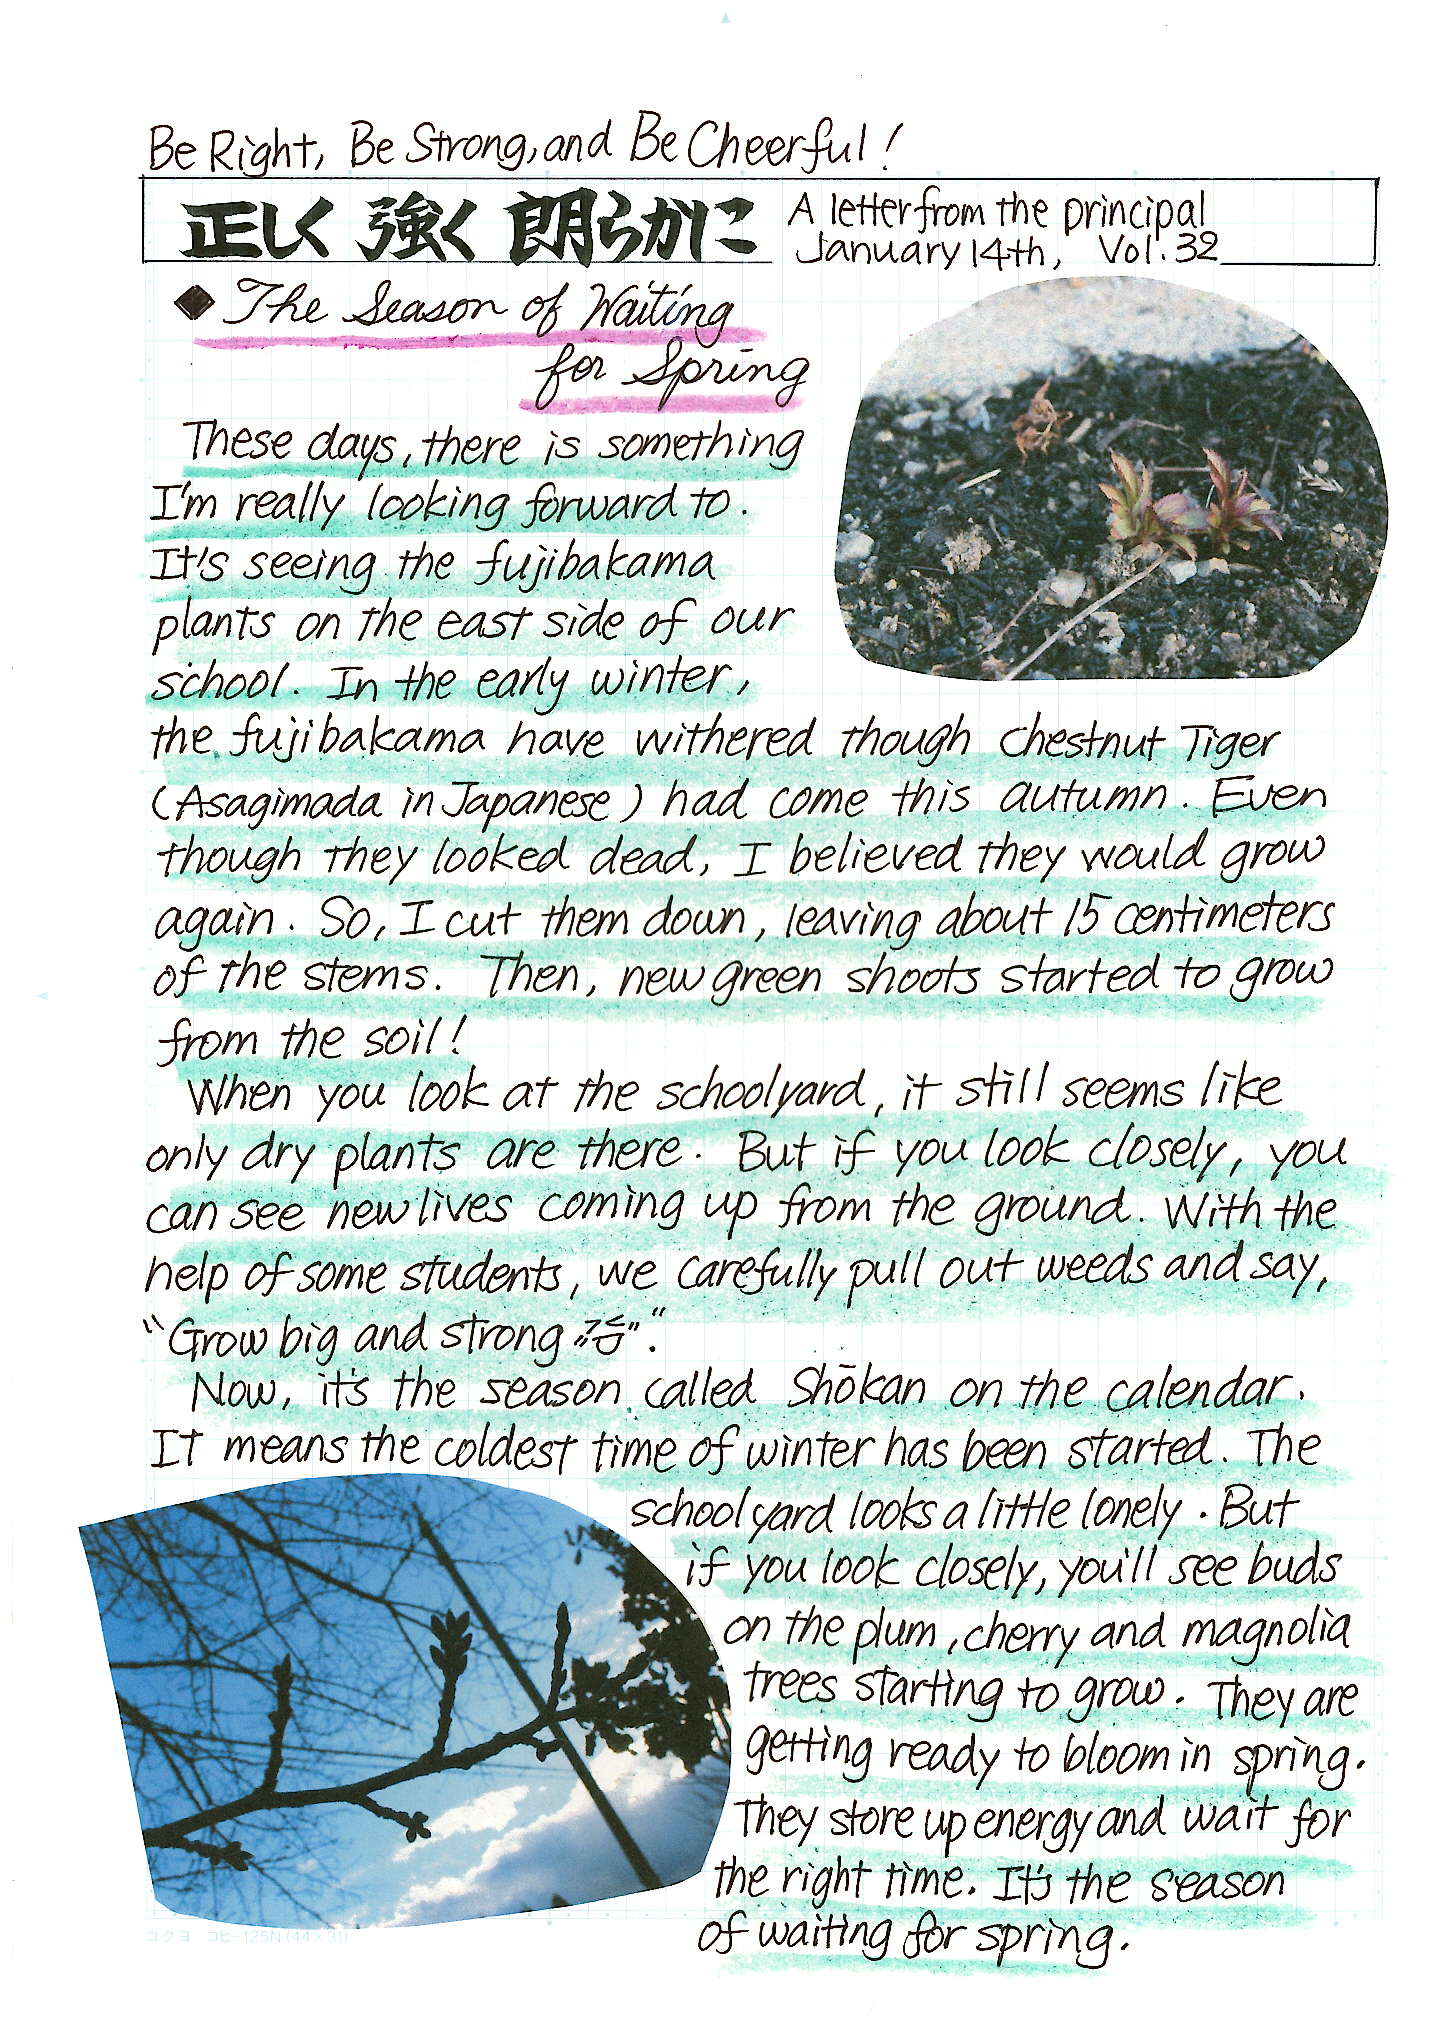 Be Right, Be Strong, and Be Cheerful!
正しく 強く 朗らかに
A letter from the principal
January 14th, Vol. 32
◆ The Season of Waiting
for Spring
These days, there is something
I'm really looking forward to.
It's seeing the fujibakama
plants on the east side of our
school. In the early winter,
the fujibakama have withered though chestnut Tiger
(Asagimada in Japanese) had come this autumn. Even
though they looked dead, I believed they would grow
again. So, I cut them down, leaving about 15 centimeters
of the stems. Then, new green shoots started to grow
from the soil!
When you look at the schoolyard, it still seems like
only dry plants are there. But if you look closely, you
can see new lives coming up from the ground. With the
help of some students, we carefully pull out weeds and say,
"Grow big and strong".
Now, it's the season called Shōkan on the calendar.
It means the coldest time of winter has been started. The
schoolyard looks a little lonely. But
if you look closely, you'll see buds
on the plum, cherry and magnolia
trees starting to grow. They are
getting ready to bloom in spring.
They store up energy and wait for
the right time. It's the season
of waiting for spring.
コクヨ コヒ-125N (44×31)